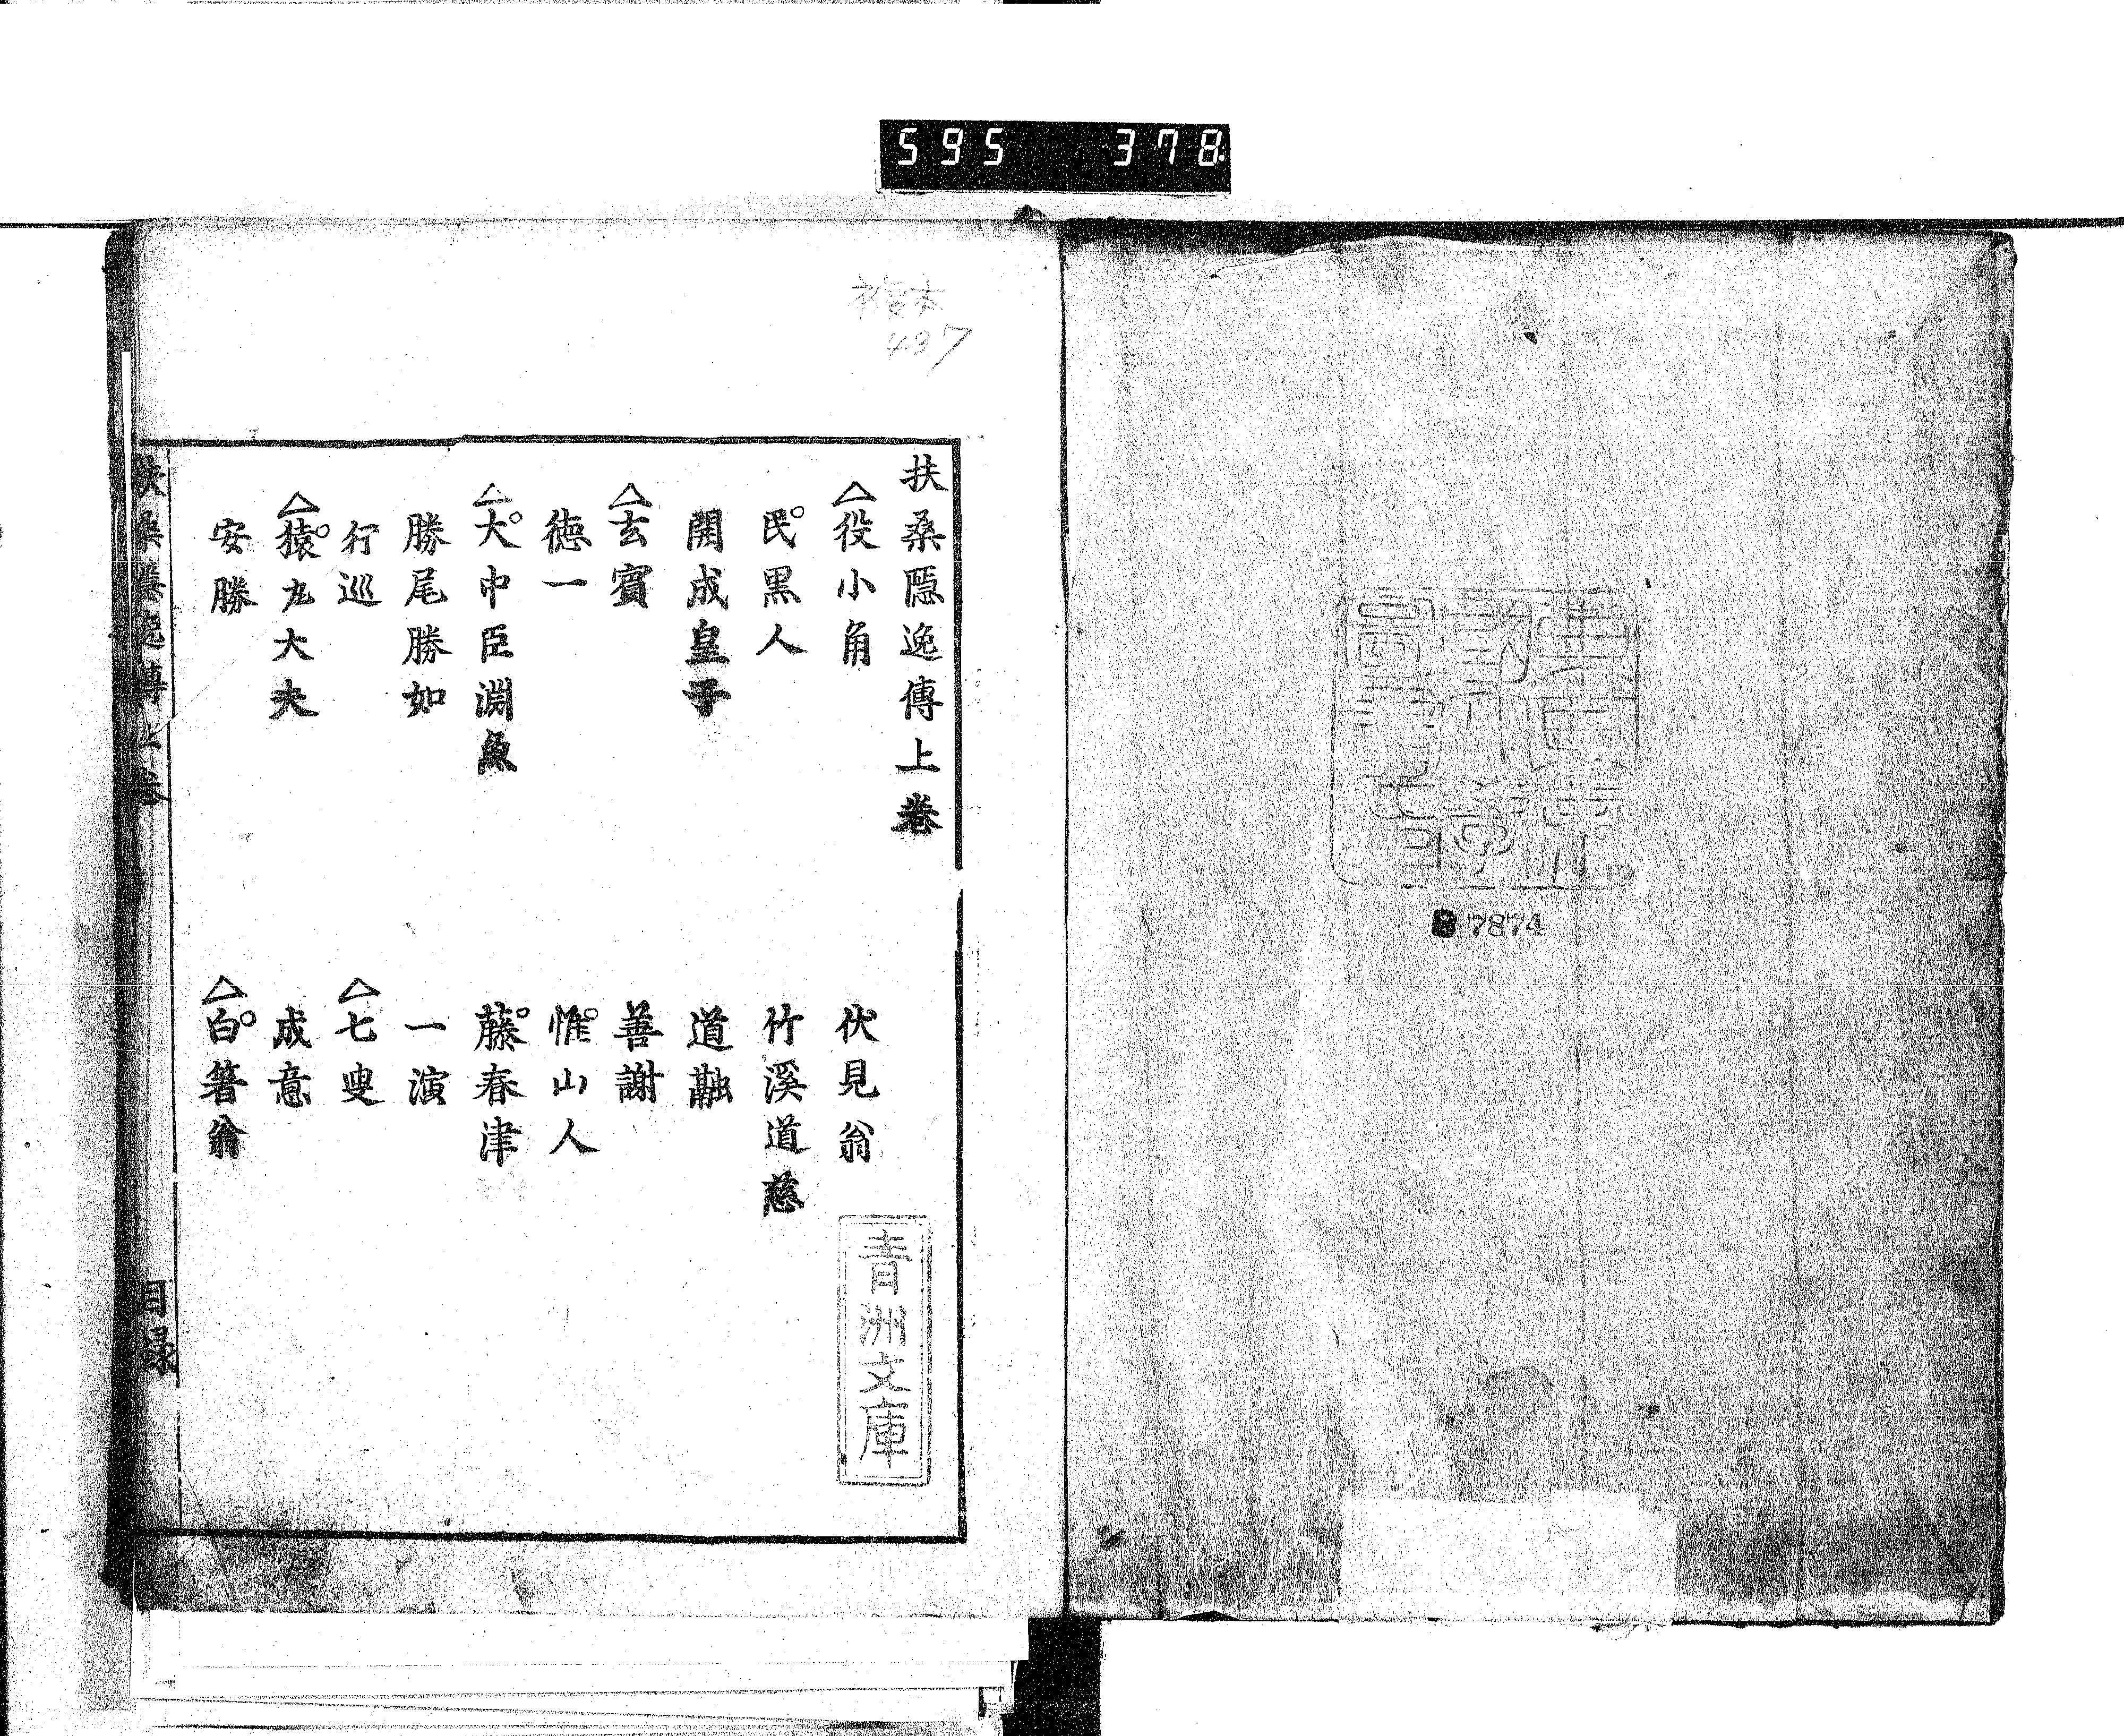 595 378
7874
437
扶桑隱逸傳上卷
△役小角 伏見翁
民黒人 竹溪道慈
開成皇子 道融
△玄賓 善謝
德一 惟山人
△大中臣淵魚 藤春津
勝尾勝如 一演
行巡 △七叟
△猿丸大夫 成意
安勝 △白箸翁
青洲文庫
扶桑隱逸傳上卷 目録